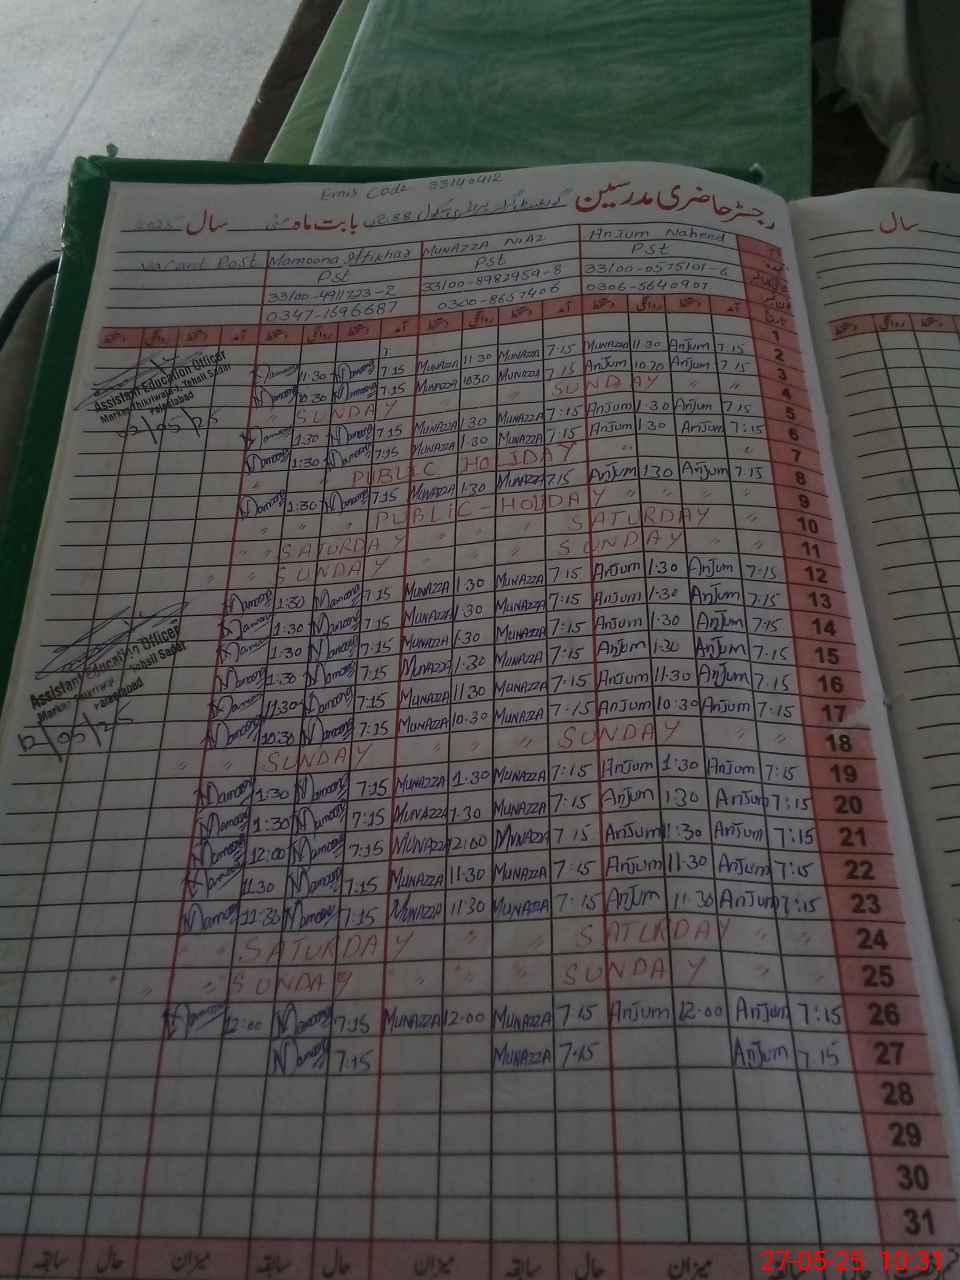 Emis Code 33140412
رجسٹر حاضری مدرسین
بابت ماہ مئی سال 2025
Vacant Post Mamoona Iftikhar MUNAZZA NIAZ Anjum Naheed
PSt PSt PSt
33100-4911723-2 33100-8982959-8 33100-0575101-6
0347-1696687 0300-8657406 0306-5640907
دستخط روانگی دستخط آمد دستخط روانگی دستخط آمد دستخط روانگی دستخط آمد
1
11:30 7:15 MUNAZZA 11:30 MUNAZZA 7:15 11:30 Anjum 7:15 2
10:30 7:15 MUNAZZA 10:30 MUNAZZA 7:15 Anjum Anjum 7:15 3
SUNDAY SUNDAY 4
1:30 7:15 MUNAZZA 1:30 MUNAZZA 7:15 Anjum 1:30 Anjum 7:15 5
1:30 7:15 MUNAZZA 1:30 MUNAZZA 7:15 Anjum 1:30 Anjum 7:15 6
PUBLIC HOLIDAY 7
1:30 7:15 MUNAZZA 1:30 MUNAZZA 7:15 Anjum 1:30 Anjum 7:15 8
PUBLIC - HOLIDAY 9
SATURDAY SATURDAY 10
SUNDAY SUNDAY 11
1:30 7:15 MUNAZZA 1:30 MUNAZZA 7:15 Anjum 1:30 Anjum 7:15 12
1:30 7:15 MUNAZZA 1:30 MUNAZZA 7:15 Anjum 1:30 Anjum 7:15 13
1:30 7:15 MUNAZZA 1:30 MUNAZZA 7:15 Anjum 1:30 Anjum 7:15 14
1:30 7:15 MUNAZZA 1:30 MUNAZZA 7:15 Anjum 1:30 Anjum 7:15 15
11:30 7:15 MUNAZZA 11:30 MUNAZZA 7:15 Anjum 11:30 Anjum 7:15 16
10:30 7:15 MUNAZZA 10:30 MUNAZZA 7:15 Anjum 10:30 Anjum 7:15 17
SUNDAY SUNDAY 18
1:30 7:15 MUNAZZA 1:30 MUNAZZA 7:15 Anjum 1:30 Anjum 7:15 19
1:30 7:15 MUNAZZA 1:30 MUNAZZA 7:15 Anjum 1:30 Anjum 7:15 20
12:00 7:15 MUNAZZA 12:00 MUNAZZA 7:15 Anjum 11:30 Anjum 7:15 21
11:30 7:15 MUNAZZA 11:30 MUNAZZA 7:15 Anjum 11:30 Anjum 7:15 22
11:30 7:15 MUNAZZA 11:30 MUNAZZA 7:15 Anjum 11:30 Anjum 7:15 23
SATURDAY SATURDAY 24
SUNDAY SUNDAY 25
12:00 7:15 MUNAZZA 12:00 MUNAZZA 7:15 Anjum 12:00 Anjum 7:15 26
7:15 MUNAZZA 7:15 Anjum 7:15 27
28
29
30
31
سابقہ حال میزان سابقہ حال میزان سابقہ حال میزان
Assistant Education Officer
Markaz Thikriwala-1, Tehsil Sadar
Faisalabad
02/05/25
Assistant Education Officer
Markaz Thikriwala Tehsil Sadar
Faisalabad
12/05/25
سال
دستخط روانگی دستخط
27-05-25 10:31